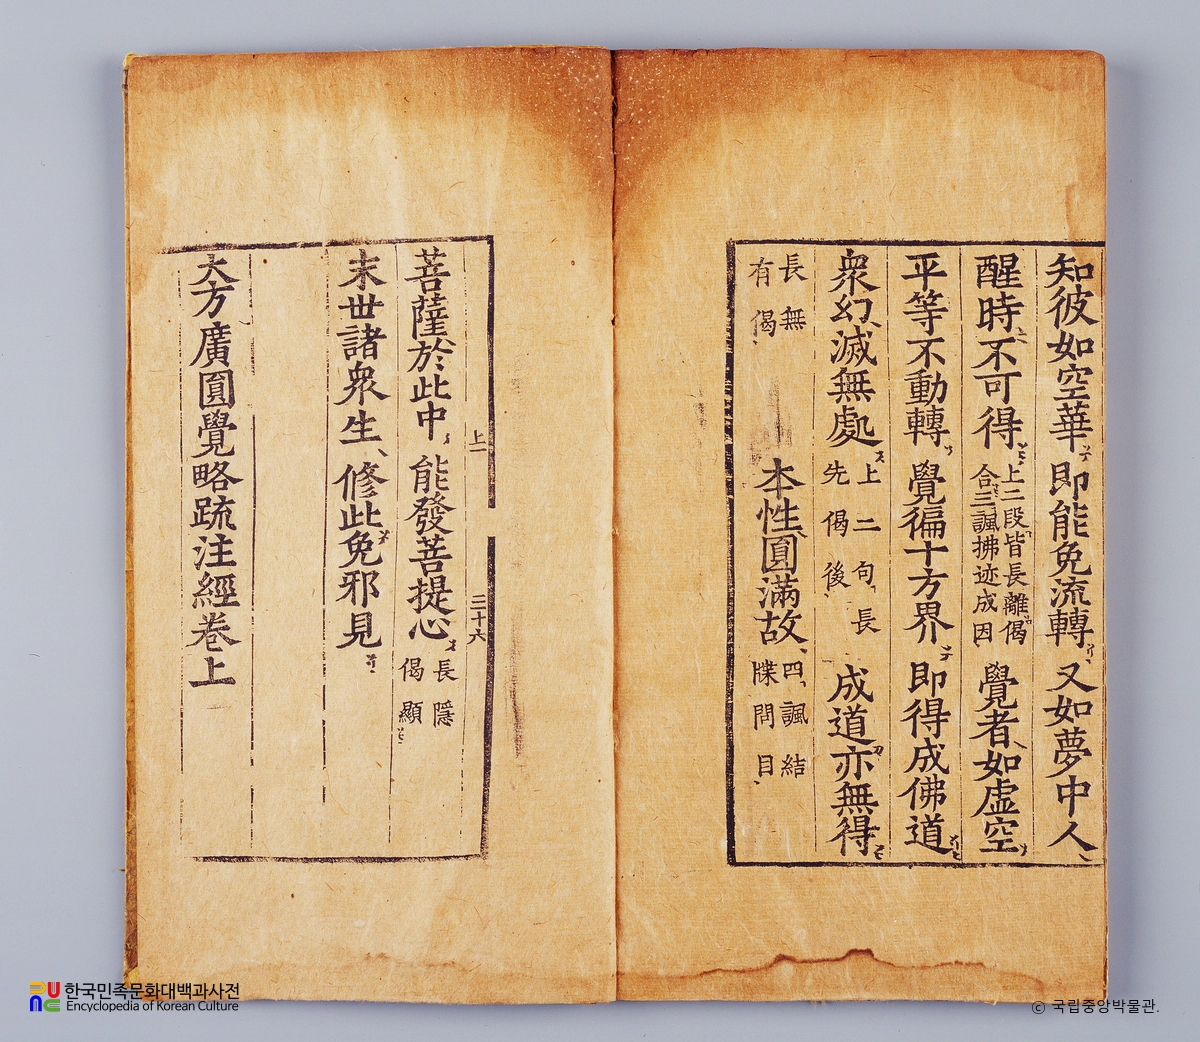 知彼如空華即能免流轉又如夢中人
醒時不可得上二段皆長離偈
合三諷拂迹成因覺者如虛空
平等不動轉覺徧十方界即得成佛道
衆幻滅無處上二句長
先偈後成道亦無得
長無
有偈本性圓滿故四諷結
牒問目
上一
三十六
菩薩於此中能發菩提心長隱
偈顯
末世諸衆生修此免邪見
大方廣圓覺略疏注經卷上
한국민족문화대백과사전
Encyclopedia of Korean Culture
© 국립중앙박물관.